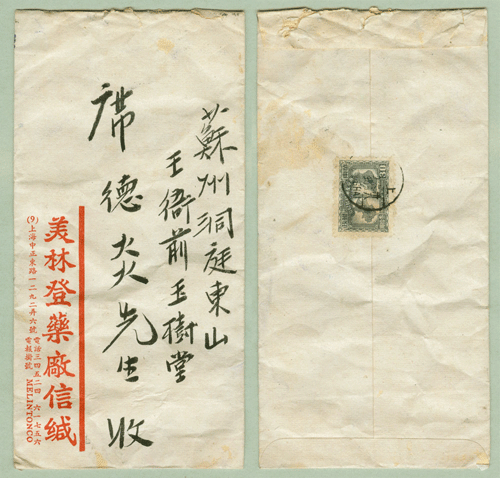 蘇州洞庭東山
王衙前玉樹堂
席德炎先生 收
美林登藥廠信緘
(9)上海中正東路一二九二弄六號 電話三四五二四 六一七五六
電報掛號 MELINTONCO